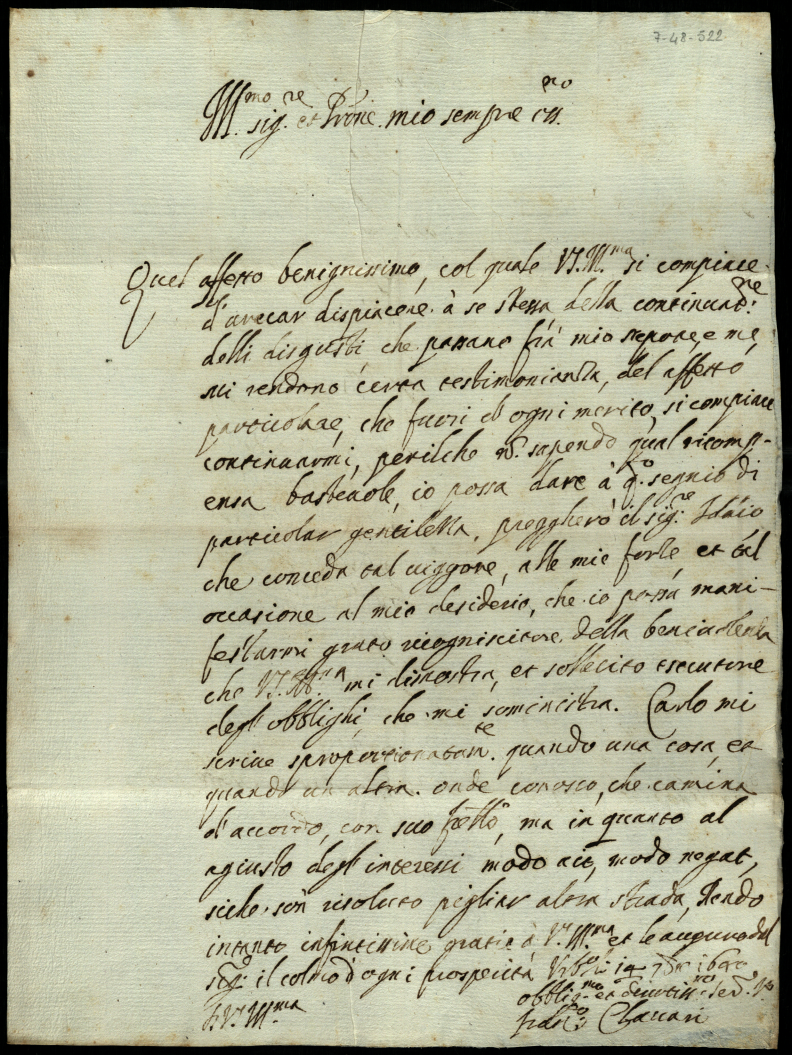 7-48-522
Ill.mo sig.re et Prone mio sempre
Quel affetto benignissimo, col quale V.S. Ill.ma si compiace
d'arrecar dispiacere à se stessa della continuat.ne
delli disgusti, che passano frà mio nepote, e me,
mi rendono certa testimonianza, del affetto
particolare, che fuori d'ogni merito, si compiace
continuarmi, perilche nō sapendo qual ricomp-
ensa basteuole, io possa dare à q.o segnio di
particolar gentilezza, preggherò il sig.re Idaio
che conceda tal uiggore, alle mie forze, et tal
occasione al mio desiderio, che io possa mani-
festarmi grato ricogniscitore della beneuolenza
che V.S. Ill.ma mi dimostra, et sollecito esecutore
degl'obblighi, che mi soministra. Carlo mi
scriue sproportionatam.te quando una cosa, et
quando un altra. onde conosco, che camina
d'accordo, con suo frēllo, ma in quanto al
agiusto degl'interessi modo ait, modo negat,
siche son risoluto pigliar altra strada, Rendo
intanto infinitissime gratie à V.S. Ill.ma et le auguro dal
sig.re il colmo d'ogni prosperità
D.V.S. Ill.ma
obblig.mo et deuotiss.mo Ser.